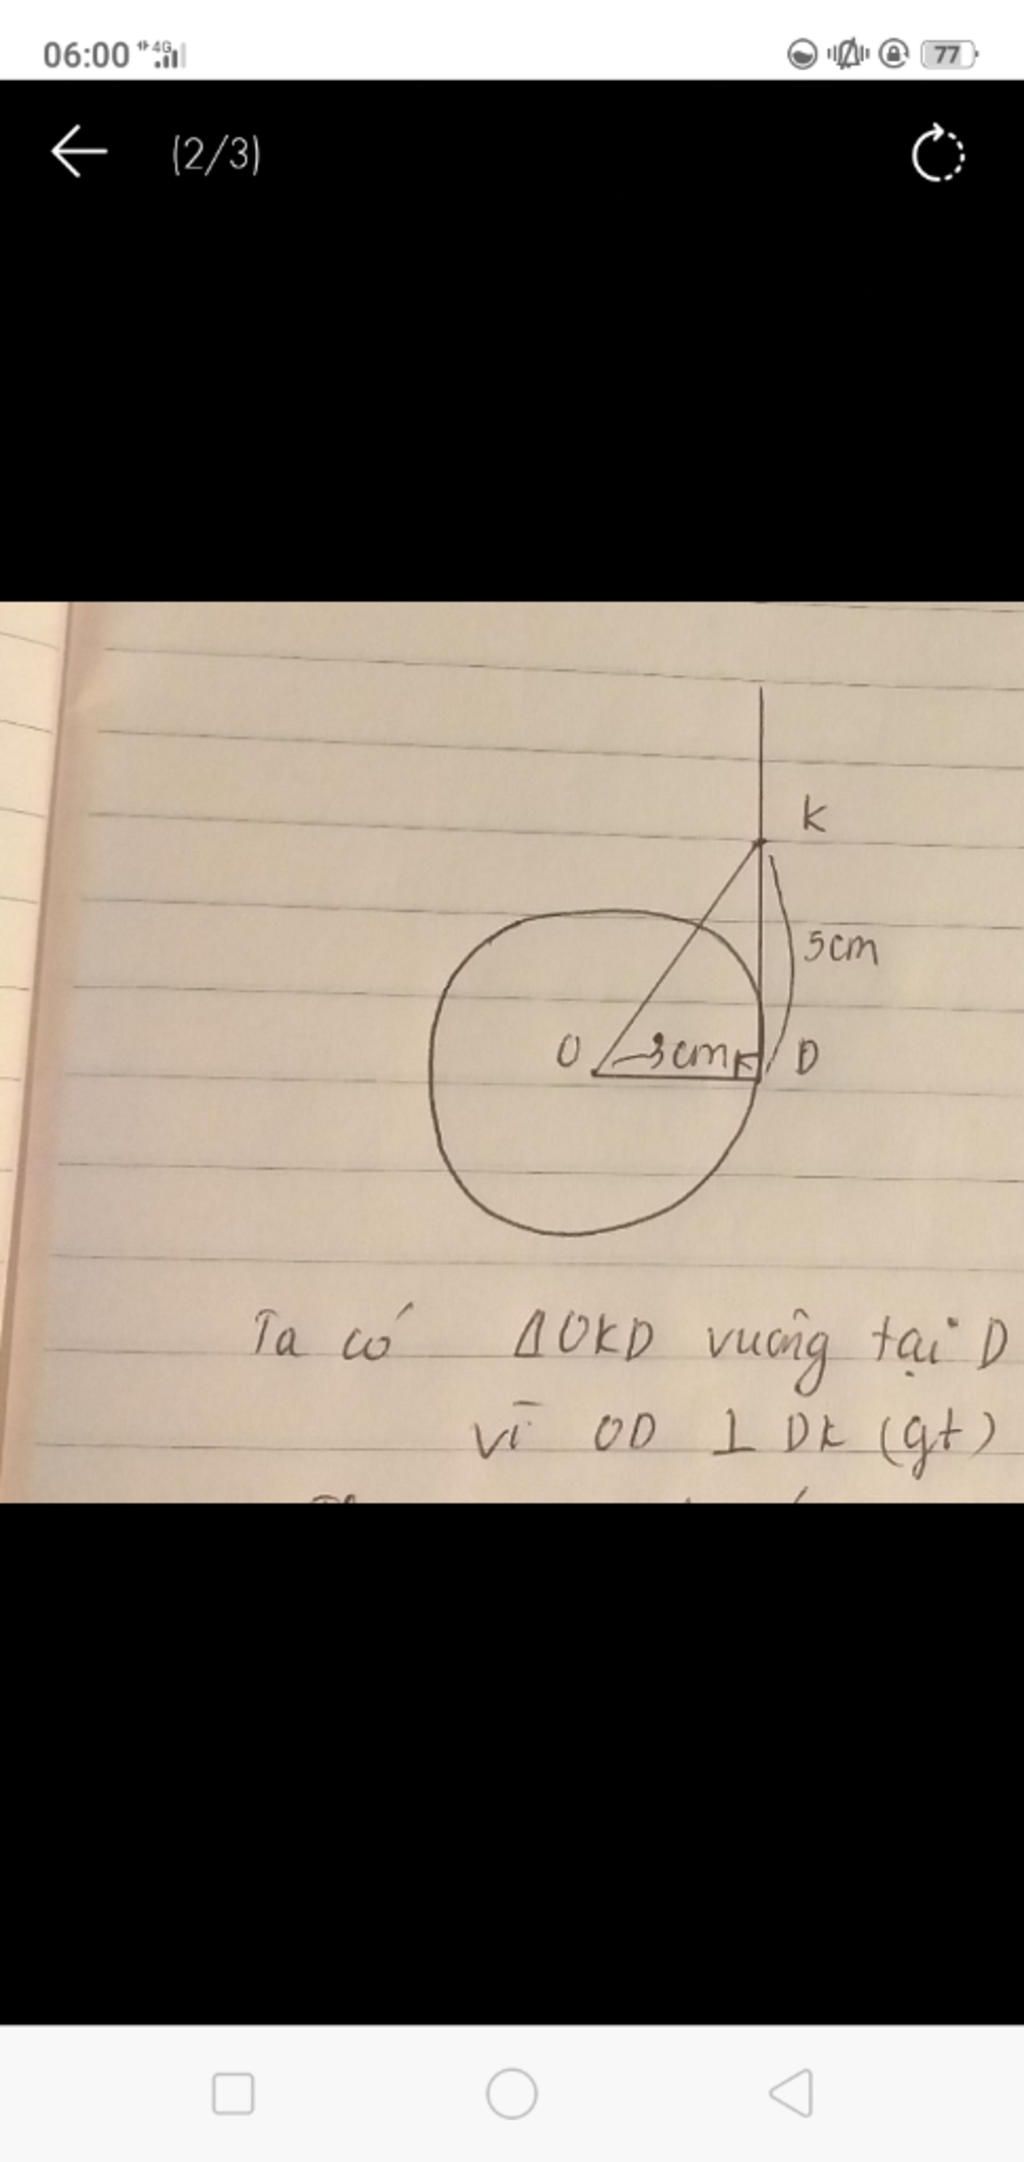 06:00 4G 77
(2/3)
K
5cm
O 3cm D
Ta có ΔOKD vuông tại D
vì OD ⊥ DK (gt)